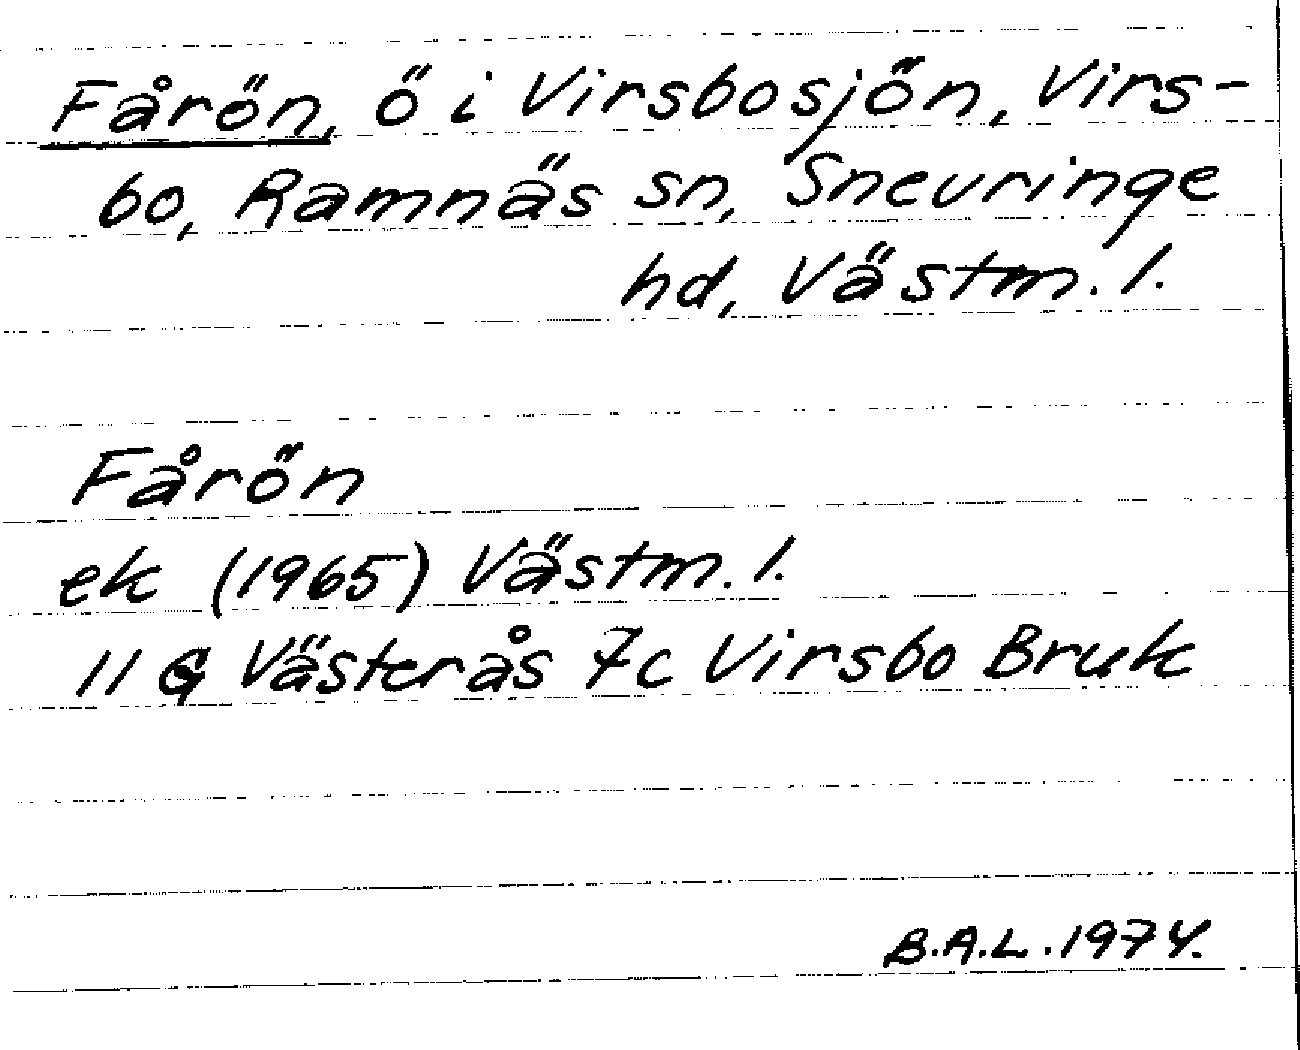 Fårön, ö i Virsbosjön, Virs-
bo, Ramnäs sn, Snevringe
hd, Västm. l.
Fårön
ek (1965) Västm. l.
11 G Västerås 7c Virsbo Bruk
B.A.L. 1974.